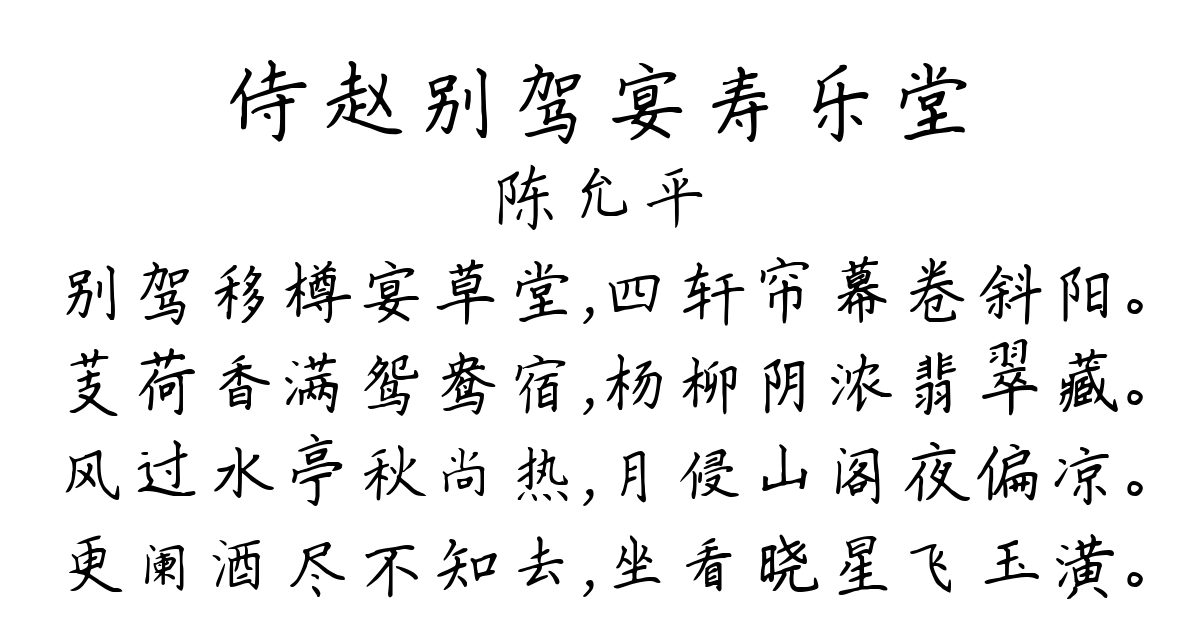 侍赵别驾宴寿乐堂
陈允平
别驾移樽宴草堂,四轩帘幕卷斜阳。
芰荷香满鸳鸯宿,杨柳阴浓翡翠藏。
风过水亭秋尚热,月侵山阁夜偏凉。
更阑酒尽不知去,坐看晓星飞玉潢。